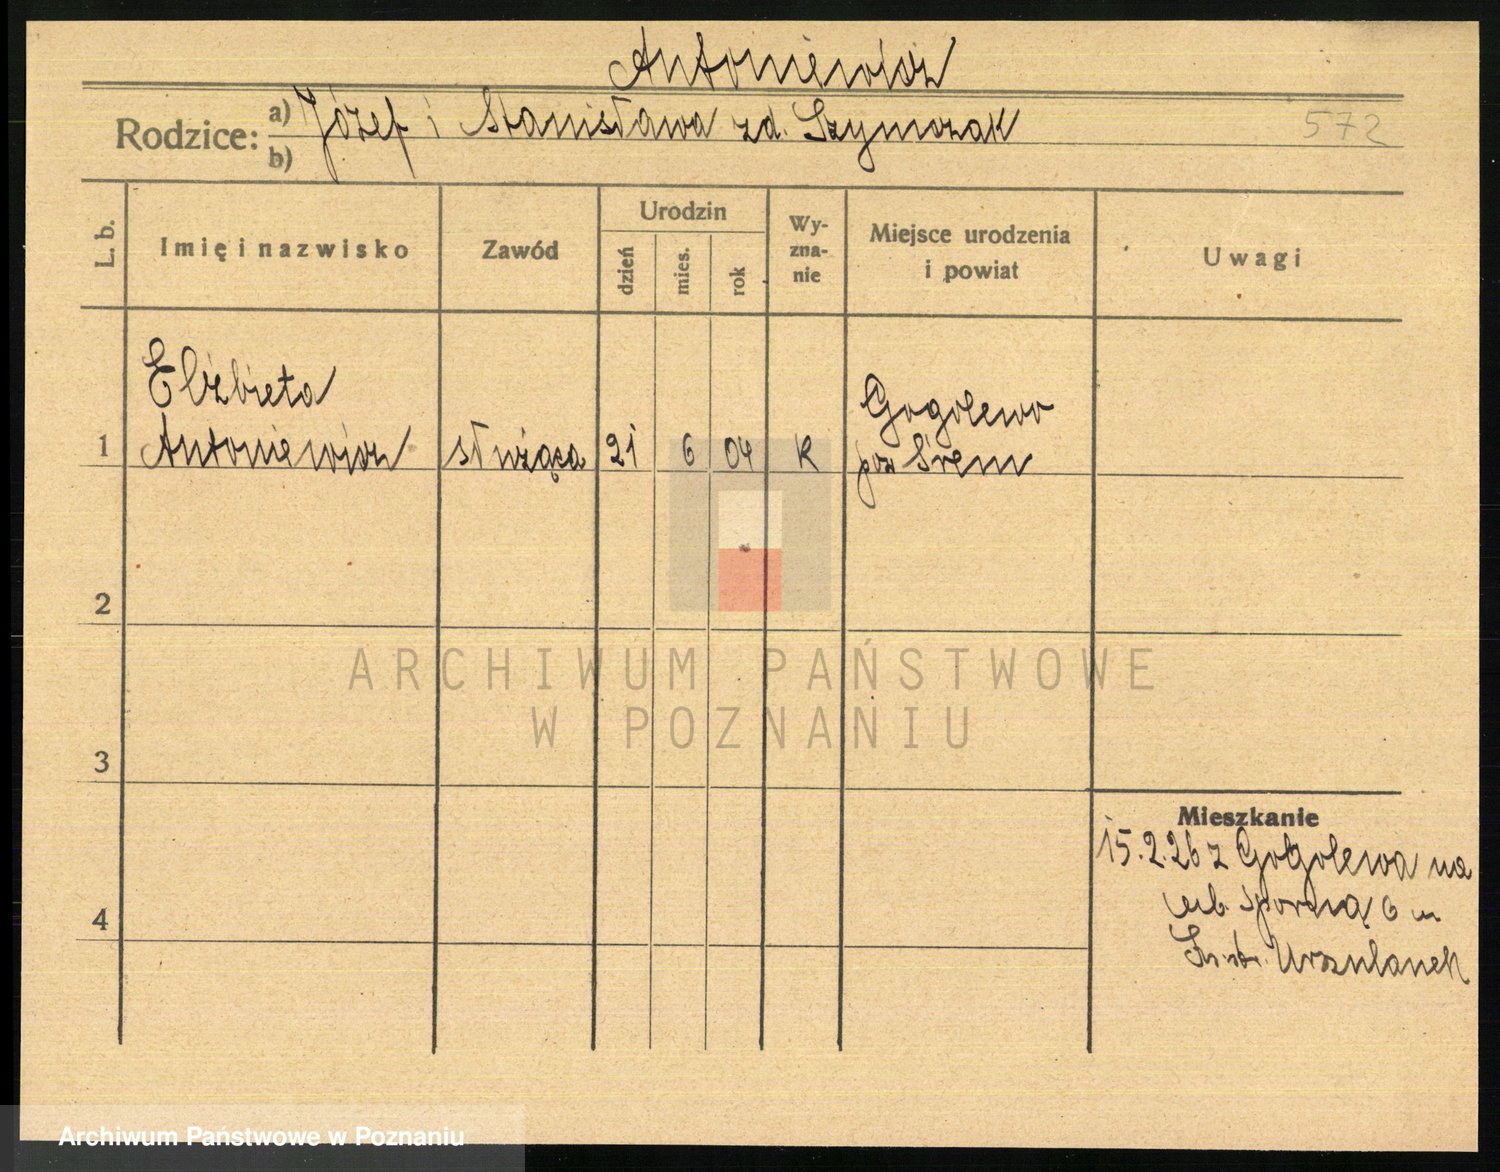 Antoniewicz
Rodzice: a) Józef i Stanisława zd. Szymczak
b)
572
L. b.
Imię i nazwisko
Zawód
Urodzin
dzień
mies.
rok
Wy-
zna-
nie
Miejsce urodzenia
i powiat
Uwagi
Elżbieta
Antoniewicz
1
służąca
21
6
04
K
Gogolewo
pow Śrem
2
3
4
Mieszkanie
15.2.26 z Gogolewa na
Sporną 6 u
Urszulanek
ARCHIWUM PAŃSTWOWE
W POZNANIU
Archiwum Państwowe w Poznaniu